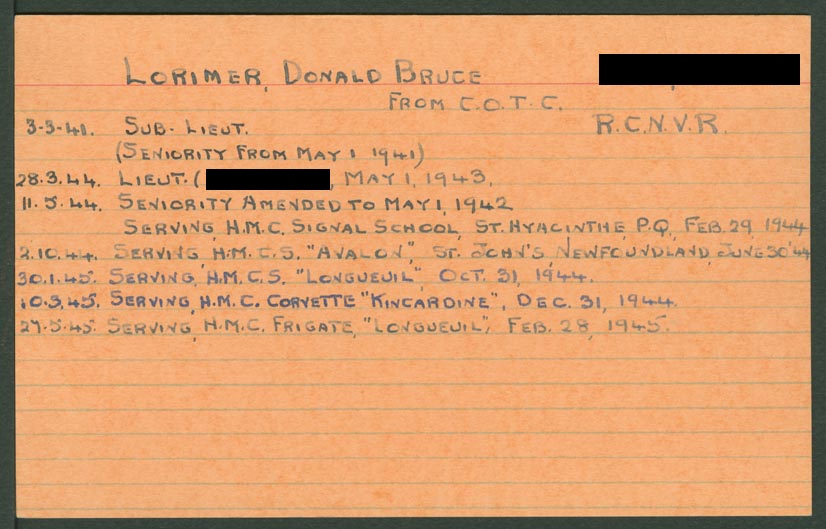 LORIMER, DONALD BRUCE
FROM C.O.T.C.
3-3-41. SUB-LIEUT. R.C.N.V.R.
(SENIORITY FROM MAY 1 1941)
28.3.44. LIEUT. ( , MAY 1, 1943.
11.5.44. SENIORITY AMENDED TO MAY 1, 1942
SERVING, H.M.C. SIGNAL SCHOOL, ST. HYACINTHE, P.Q., FEB. 29, 1944
2.10.44. SERVING, H.M.C.S. "AVALON", ST. JOHN'S, NEWFOUNDLAND, JUNE 30 '44
30.1.45. SERVING, H.M.C.S. "LONGUEUIL", OCT. 31, 1944.
10.3.45. SERVING, H.M.C. CORVETTE "KINCARDINE", DEC. 31, 1944.
27-5-45. SERVING, H.M.C. FRIGATE, "LONGUEUIL", FEB. 28, 1945.